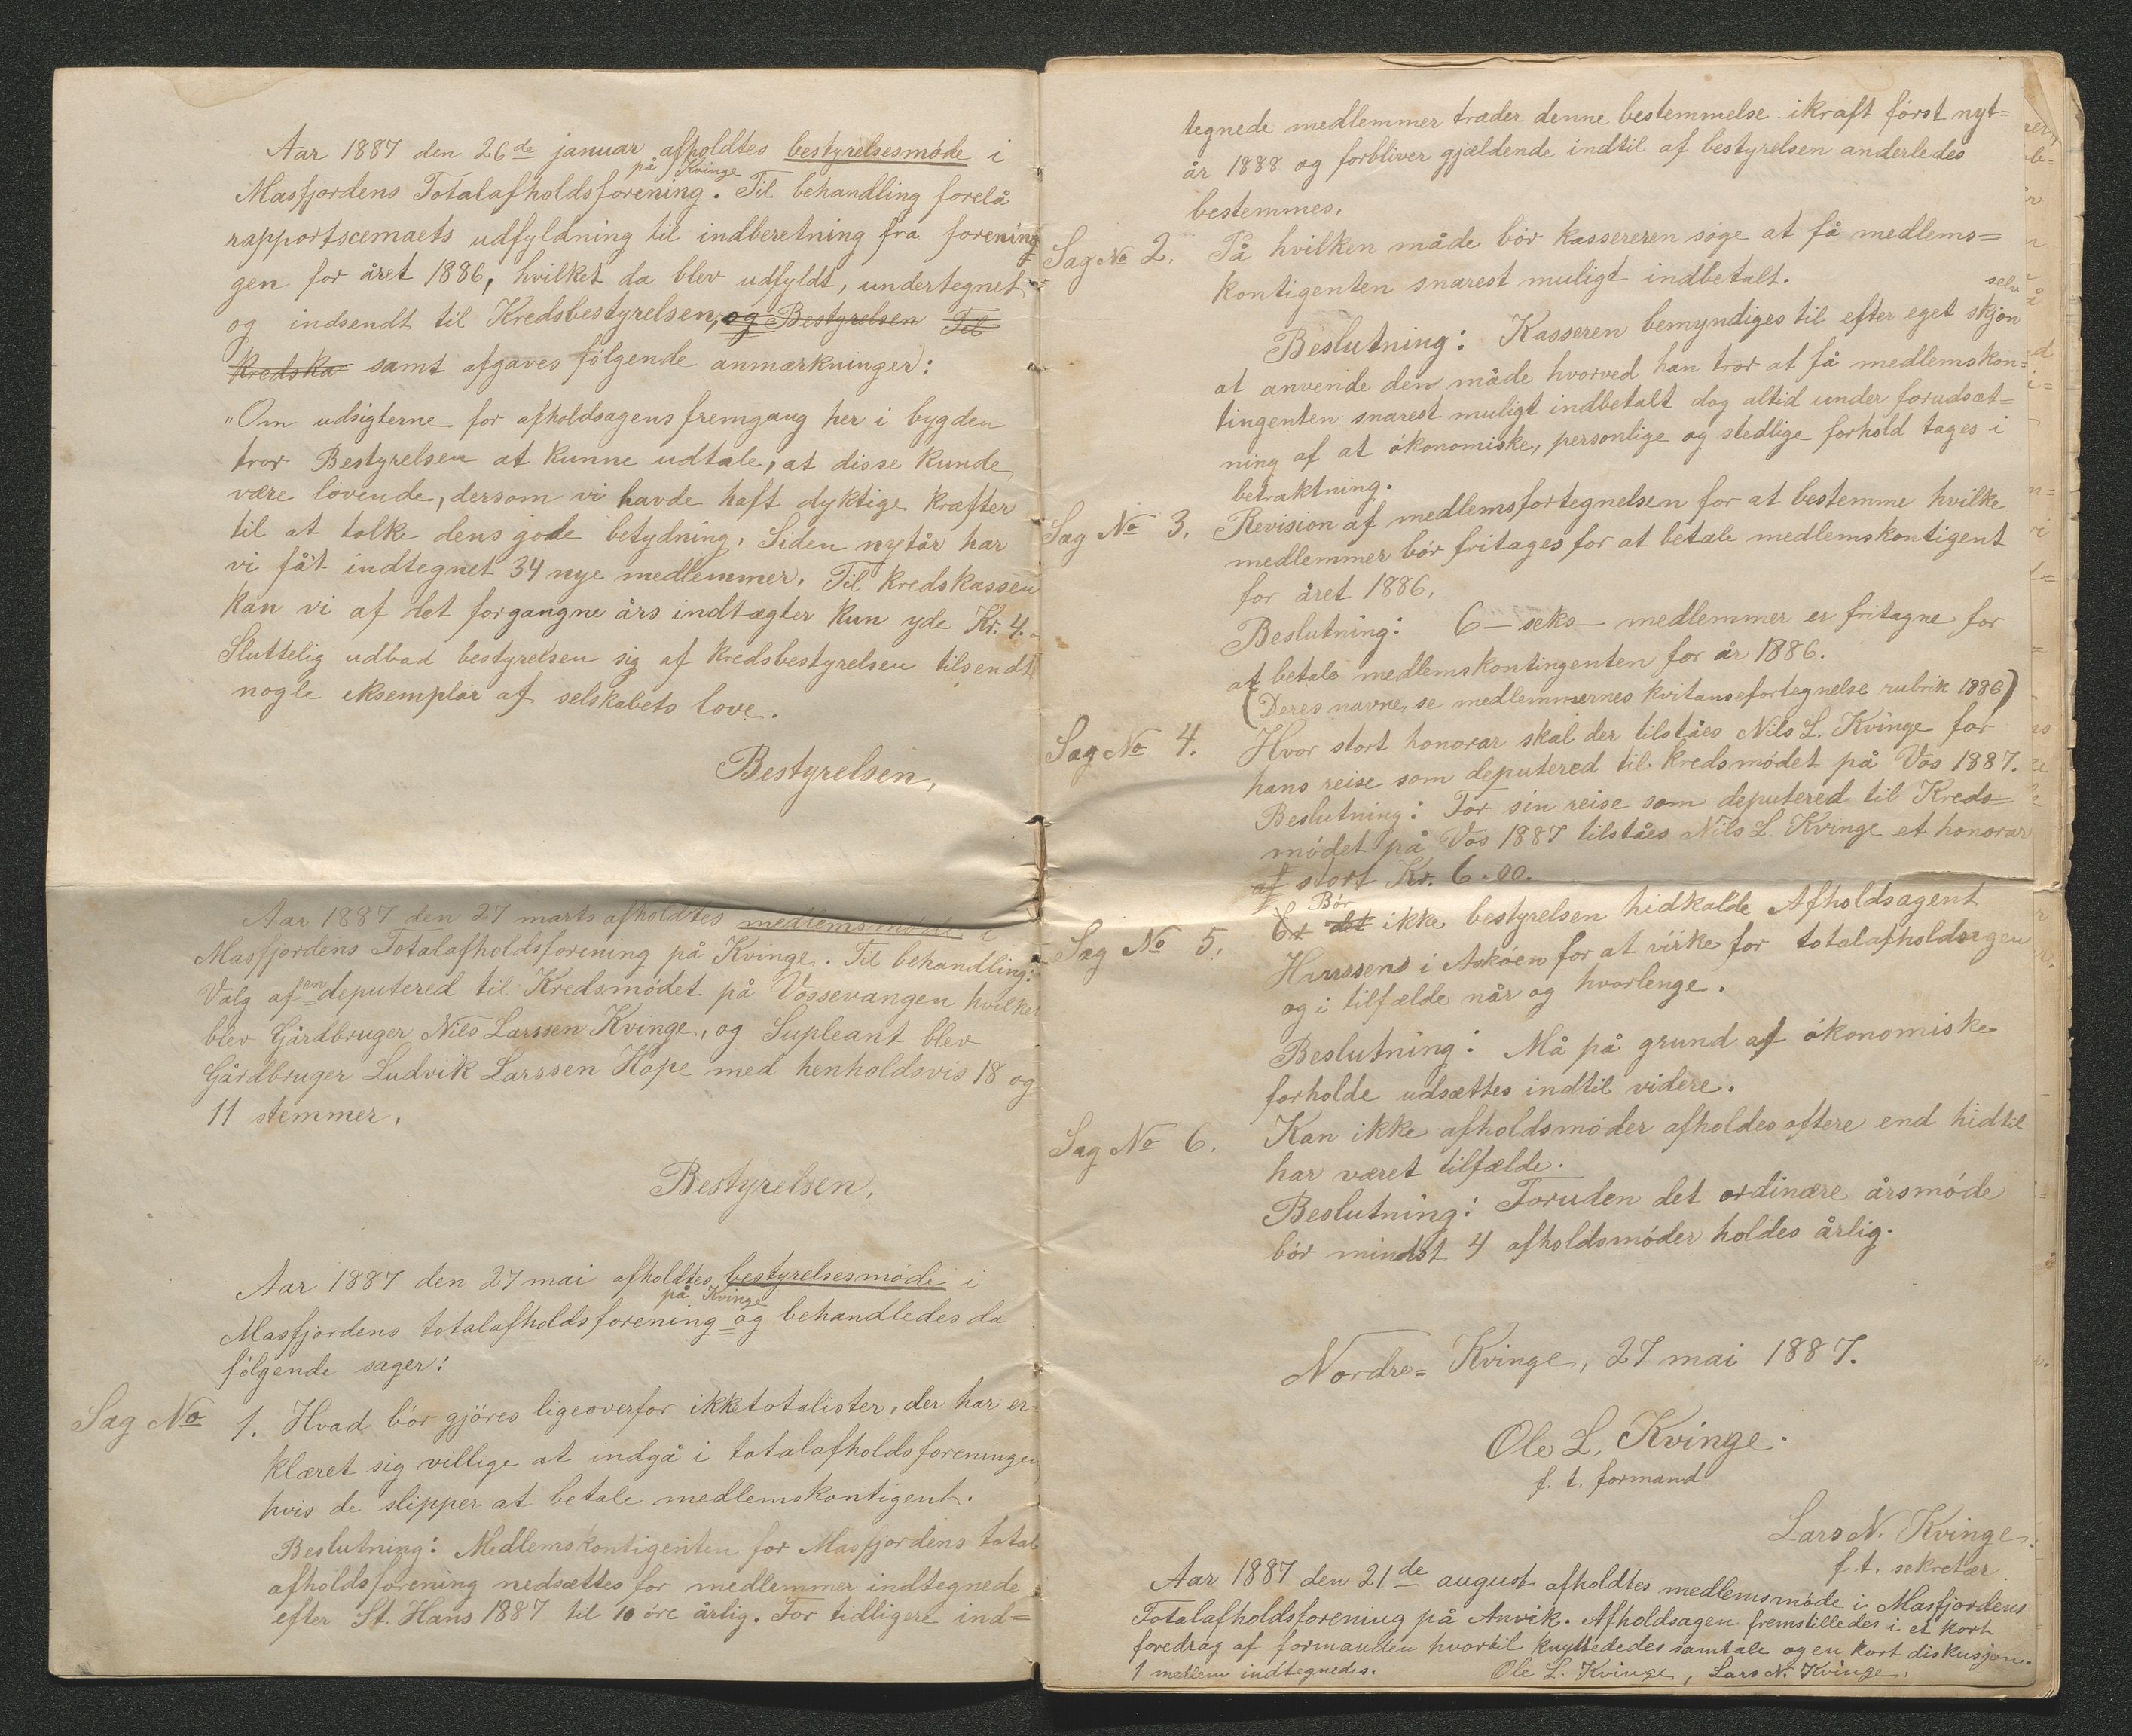 Aar 1887 den 26de januar afholdtes bestyrelsesmøde i
på Kvinge
Masfjordens Totalafholdsforening. Til behandling forelå
rapportscemaets udfyldning til indberetning fra forenin-
gen for året 1886, hvilket da blev udfyldt, undertegnet
og indsendt til Kredsbestyrelsen, og Bestyrelsen Til
Kredska samt afgaves følgende anmærkninger:
"Om udsigterne for afholdsagens fremgang her i bygden
tror Bestyrelsen at kunne udtale, at disse kunde
være lovende, dersom vi havde haft dyktige kræfter
til at tolke dens gode betydning. Siden nytår har
vi fåt indtegnet 34 nye medlemmer. Til kredskassen
kan vi af det forgangne års indtægter kun yde Kr. 4.
Sluttelig udbad bestyrelsen sig af kredsbestyrelsen tilsendt
nogle eksemplar af selskabets love.
Bestyrelsen,
Aar 1887 den 27 marts afholdtes medlemsmøde i
Masfjordens Totalafholdsforening på Kvinge. Til behandling:
Valg af en deputered til Kredsmødet på Vossevangen hvilket
blev Gårdbruger Nils Larssen Kvinge, og Supleant blev
Gårdbruger Ludvik Larssen Hope med henholdsvis 18 og
11 stemmer.
Bestyrelsen,
Aar 1887 den 27 mai afholdtes bestyrelsesmøde i
på Kvinge
Masfjordens totalafholdsforening og behandledes da
følgende sager:
Sag No 1. Hvad bør gjøres ligeoverfor ikketotalister, der har er-
klæret sig villige at indgå i totalafholdsforeningen
hvis de slipper at betale medlemskontigent.
Beslutning: Medlemskontigenten for Masfjordens total
afholdsforening nedsættes for medlemmer indtegnede
efter St. Hans 1887 til 10 øre årlig. For tidligere ind=
tegnede medlemmer træder denne bestemmelse ikraft først nyt=
år 1888 og forbliver gjældende indtil af bestyrelsen anderledes
bestemmes.
Sag No 2. På hvilken måde bør kassereren søge at få medlems=
kontigenten snarest muligt indbetalt.
selv
Beslutning: Kasseren bemyndiges til efter eget skjøn
at anvende den måde hvorved han tror at få medlemskon=
tingenten snarest muligt indbetalt dog altid under forudsæt=
ning af at økonomiske, personlige og stedlige forhold tages i
betraktning.
Sag No 3. Revision af medlemsfortegnelsen for at bestemme hvilke
medlemmer bør fritages for at betale medlemskontigent
for året 1886.
Beslutning: 6 — seks — medlemmer er fritagne for
at betale medlemskontingenten for år 1886.
(Deres navne, se medlemmernes kvitansefortegnelse rubrik 1886)
Sag No 4. Hvor stort honorar skal der tilståes Nils L. Kvinge for
hans reise som deputered til kredsmødet på Vos 1887.
Beslutning: For sin reise som deputered til Kreds=
mødet på Vos 1887 tilståes Nils L. Kvinge et honorar
af stort Kr. 6.00.
Bør
Sag No 5. det ikke bestyrelsen hidkalde Afholdsagent
i Askøen for at virke for totalafholdsagen
og i tilfælde når og hvorlenge.
Beslutning: Må på grund af økonomiske
forholde udsættes indtil videre.
Sag No 6. Kan ikke afholdsmøder afholdes oftere end hidtil
har været tilfælde.
Beslutning: Foruden det ordinære årsmøde
bør mindst 4 afholdsmøder holdes årlig.
Nordre= Kvinge, 27 mai 1887.
Ole L. Kvinge.
f. t. formand.
Lars N. Kvinge.
f. t. sekretær.
Aar 1887 den 21de august afholdtes medlemsmøde i Masfjordens
Totalafholdsforening på Anvik. Afholdsagen fremstilledes i et kort
foredrag af formanden hvortil knyttededes samtale og en kort diskusjon.
1 medlem indtegnedes. Ole L. Kvinge, Lars N. Kvinge.